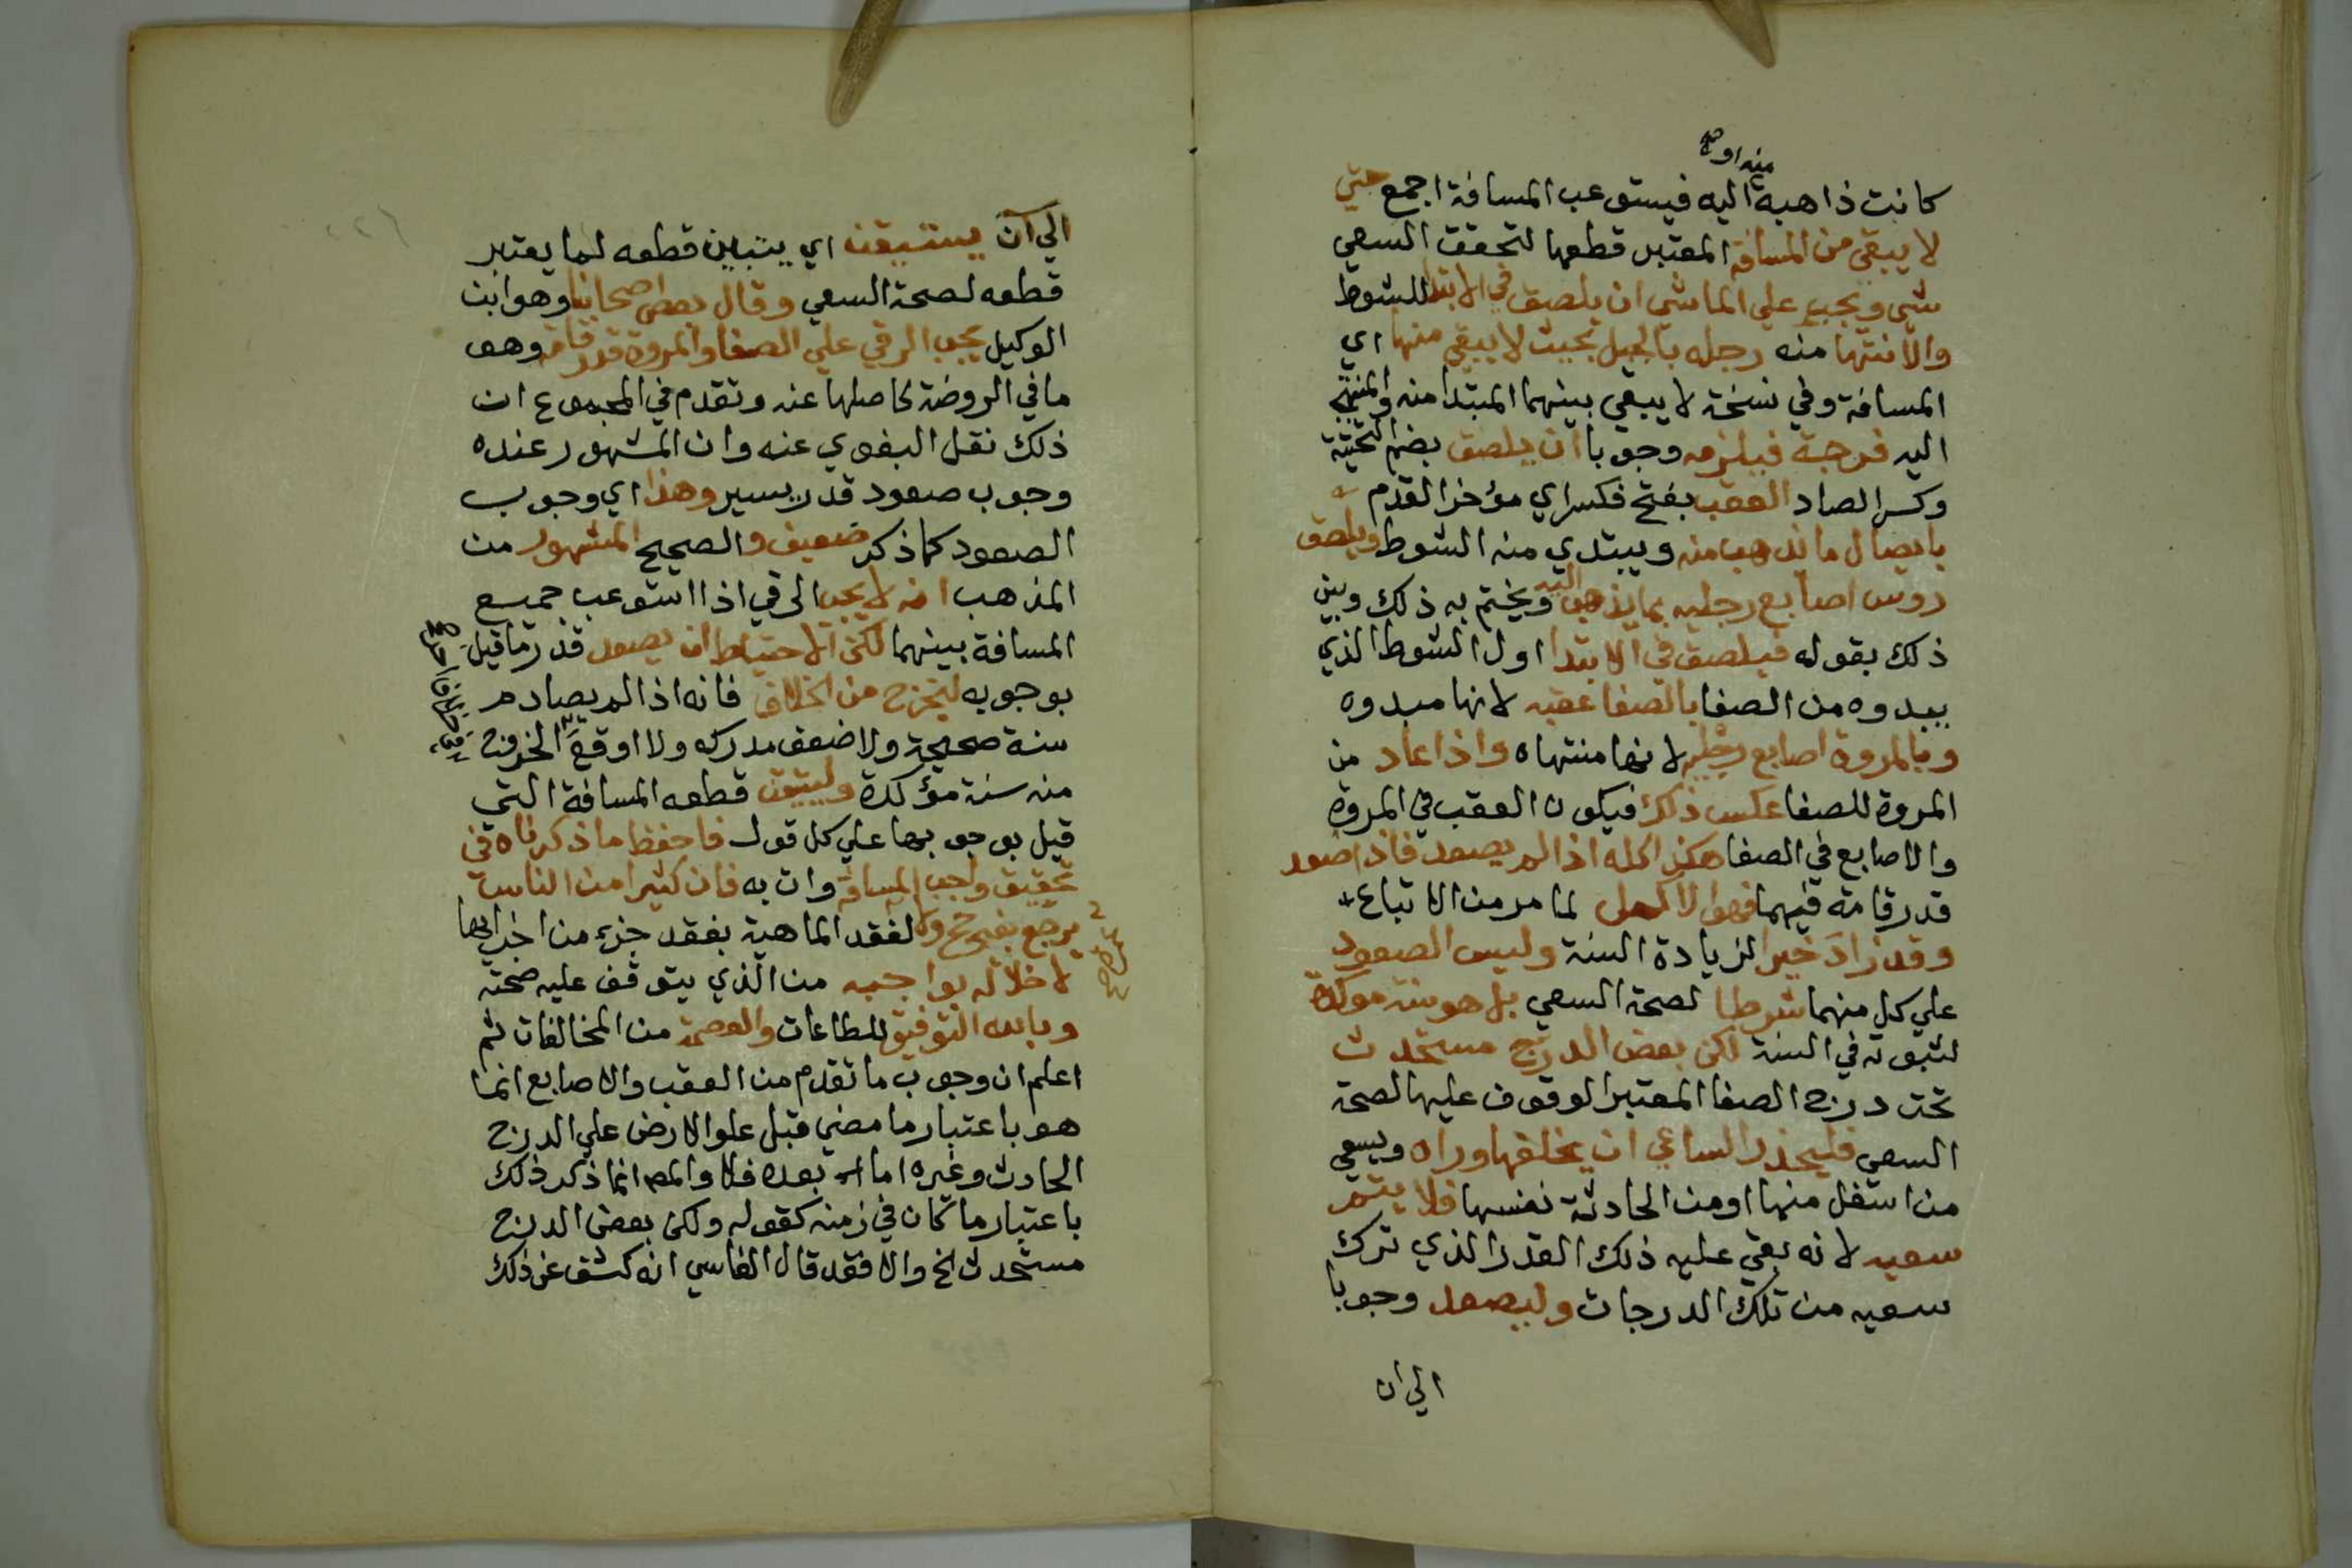 منه او صح
كانت ذاهبة اليه فيستوعب المسافة اجمع حتي
لا يبقي من المسافة المعتبر قطعها لتحقق السعي
شي ويجب علي الماشي ان يلصق في الابتدا للشوط
والانتها منه رجله بالجبل بحيث لا يبقي منها اي
المسافة وفي نسخة لا يبقي بينهما المبتدا منه والمنتهي
اليه فرجة فيلزمه وجوبا ان يلصق بضم التحتية
وكسر الصاد العقب بفتح فكسر اي مؤخر القدم
بايصال ما يذهب منه ويبتدي منه الشوط ويلصق
روس اصابع رجليه بما يذهب اليه ويختم به ذلك وبين
ذلك بقوله فيلصق في الابتدا اول الشوط الذي
يبدوه من الصفا بالصفا عقبه لانها مبدوه
وبالمروة اصابع رجليه لانها منتهاه واذا عاد من
المروة للصفا عكس ذلك فيكون العقب في المروة
والاصابع في الصفا هكذا كله اذا لم يصعد فاذا صعد
قدر قامة فيهما فهو الاكمل لما مر من الاتباع
وقد زاد خيرا لزيادة السنة وليس الصعود
علي كل منهما شرطا لصحة السعي بل هو سنة موكدة
لثبوته في السنة لكن بعض الدرج مستحدث
تحت درج الصفا المعتبر الوقوف عليها لصحة
السعي فليحذر الساعي ان يخلفها وراه ويسعي
من اسفل منها او من الحادثة نفسها فلا يتم
سعيه لانه بقي عليه ذلك القدر الذي ترك
سعيه من تلك الدرجات وليصعد وجوبا
الي ان
الي ان يستيقن اي يتبين قطعه لما يعتبر
قطعه لصحة السعي وقال بعض اصحابنا وهو ابن
الوكيل يجب الرقي علي الصفا والمروة قدر قامة وهو
ما في الروضة كاصلها عنه وتقدم في المجموع ان
ذلك نقل البغوي عنه وان المشهور عنده
وجوب صعود قدر يسير وهذا اي وجوب
الصعود كما ذكر ضعيف والصحيح المشهور من
المذهب انه لا يجب الرقي اذا استوعب جميع
المسافة بينهما لكن الاحتياط ان يصعد قدر ما قيل
بوجوبه ليخرج من الخلاف فانه اذا لم يصادم
سنة صحيحة ولا ضعف مدركه ولا اوقع الخروج
منه سنة مؤكدة وليتيقن قطعه المسافة التي
قيل بوجوبها علي كل قول فاحفظ ما ذكرناه في
تحقيق واجب المسافة وات به فان كثيرا من الناس
يرجع بغير حج ولا لفقد الماهية بفقد جزء من اجزايها
لاخلاله بواجبه من الذي يتوقف عليه صحته
وبالله التوفيق للطاعات والعصمة من المخالفات ثم
اعلم ان وجوب ما تقدم من العقب والاصابع انما
هو باعتبار ما مضي قبل علو الارض علي الدرج
الحادث وغيره اما بعده فلا والمص انما ذكر ذلك
باعتبار ما كان في زمنه كقوله ولكن بعض الدرج
مستحدث الخ والا فقد قال الفاسي انه كشف عن ذلك